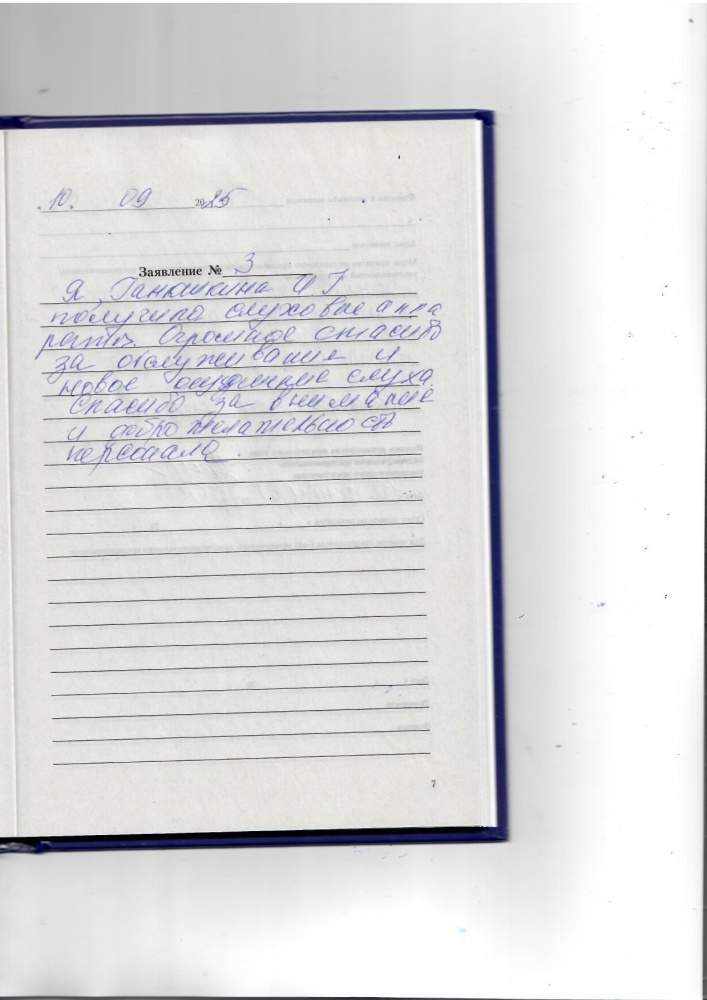 10. 09 2025
Заявление № 3
Я, Ганюшкина И Г
получила слуховые аппа
раты. Огромное спасибо
за обслуживание и
новое ощущение слуха.
Спасибо за внимание
и доброжелательность
персонала.
7